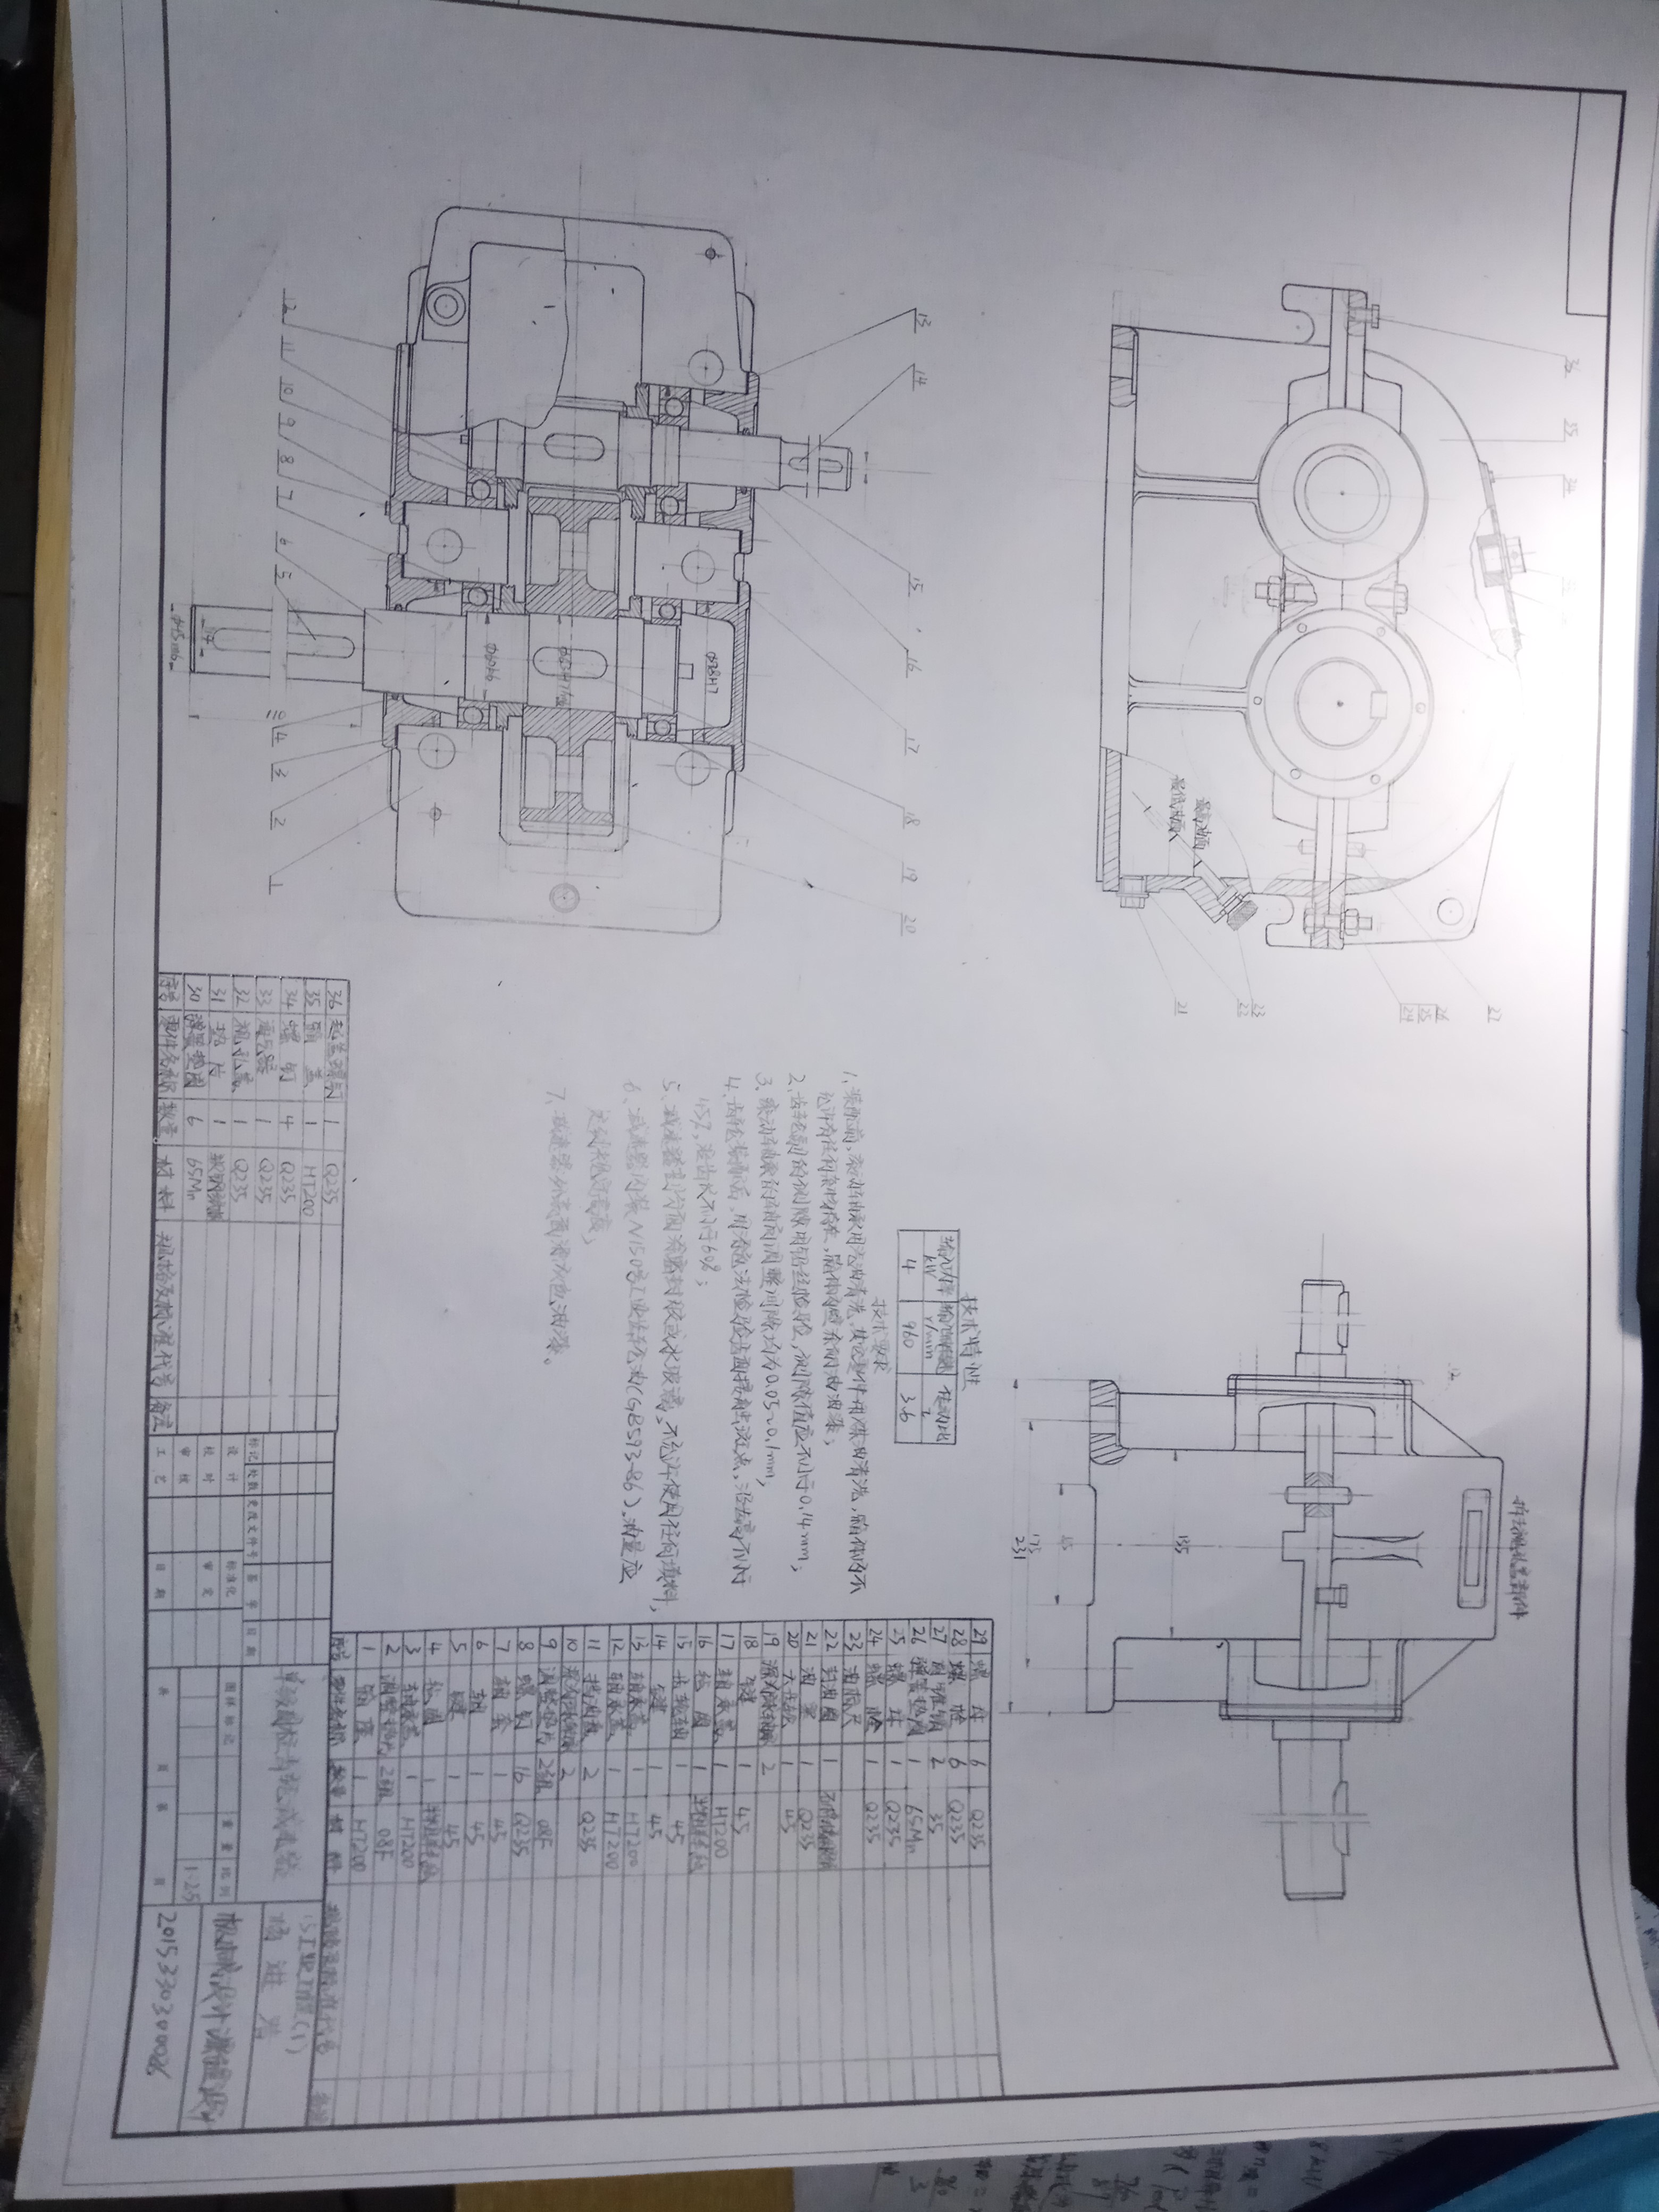 36
35
34
27
26
25
24
23
22
21
最高油面
最低油面
拆去视孔盖部件
12
135
175
231
13
14
15
16
17
18
19
20
Φ78H7
Φ60k6
14
Φ45m6
12
11
10
9
8
7
6
5
4
3
2
1
技术特性
输入功率 kW
输入轴转速 r/min
传动比 i
4 960 3.6
技术要求
1、装配前,滚动轴承用汽油清洗,其它零件用煤油清洗,箱体内不
允许有任何杂物存在,箱体内壁涂耐油油漆;
2、齿轮副的侧隙用铅丝检验,侧隙值应不小于0.14mm;
3、滚动轴承的轴向调整间隙均为0.05~0.1mm;
4、齿轮装配后,用涂色法检验齿面接触斑点,沿齿高不小于
45%,沿齿长不小于60%;
5、减速器剖分面涂密封胶或水玻璃,不允许使用任何填料;
6、减速器内装N150号工业齿轮油(GB5903-86),油量应
达到规定高度;
7、减速器外表面涂灰色油漆。
29 螺母 6 Q235
28 螺栓 6 Q235
27 圆锥销 2 35
26 弹簧垫圈 1 65Mn
25 螺母 1 Q235
24 螺栓 1 Q235
23 油标尺
22 封油圈 1
21 油塞 1 Q235
20 大齿轮 1 45
19 深沟球轴承 2
18 键 1 45
17 轴承盖 1 HT200
16 毡圈 1
15 齿轮轴 1 45
14 键 1 45
13 轴承盖 1 HT200
12 轴承盖 1 HT200
11 挡油盘 2 Q235
10 深沟球轴承 2
9 调整垫片 2组 08F
8 螺钉 16 Q235
7 轴套 1 45
6 轴 1 45
5 键 1 45
4 毡圈 1
3 轴承盖 1 HT200
2 调整垫片 2组 08F
1 箱座 1 HT200
序号 零件名称 数量 材料 规格及标准代号 备注
36 起盖螺钉 1 Q235
35 箱盖 1 HT200
34 螺钉 4 Q235
33 通气器 1 Q235
32 视孔盖 1 Q235
31 垫片 1
30 弹簧垫圈 6 65Mn
序号 零件名称 数量 材料 规格及标准代号 备注
标记 处数 更改文件号 签字 日期
设计 标准化
校对 审定
审核
工艺 日期
单级圆柱齿轮减速器
图样标记 重量 比例
1:2.5
共 页 第 页
15工业工程(1)
杨进
机械设计课程设计
2015330300026